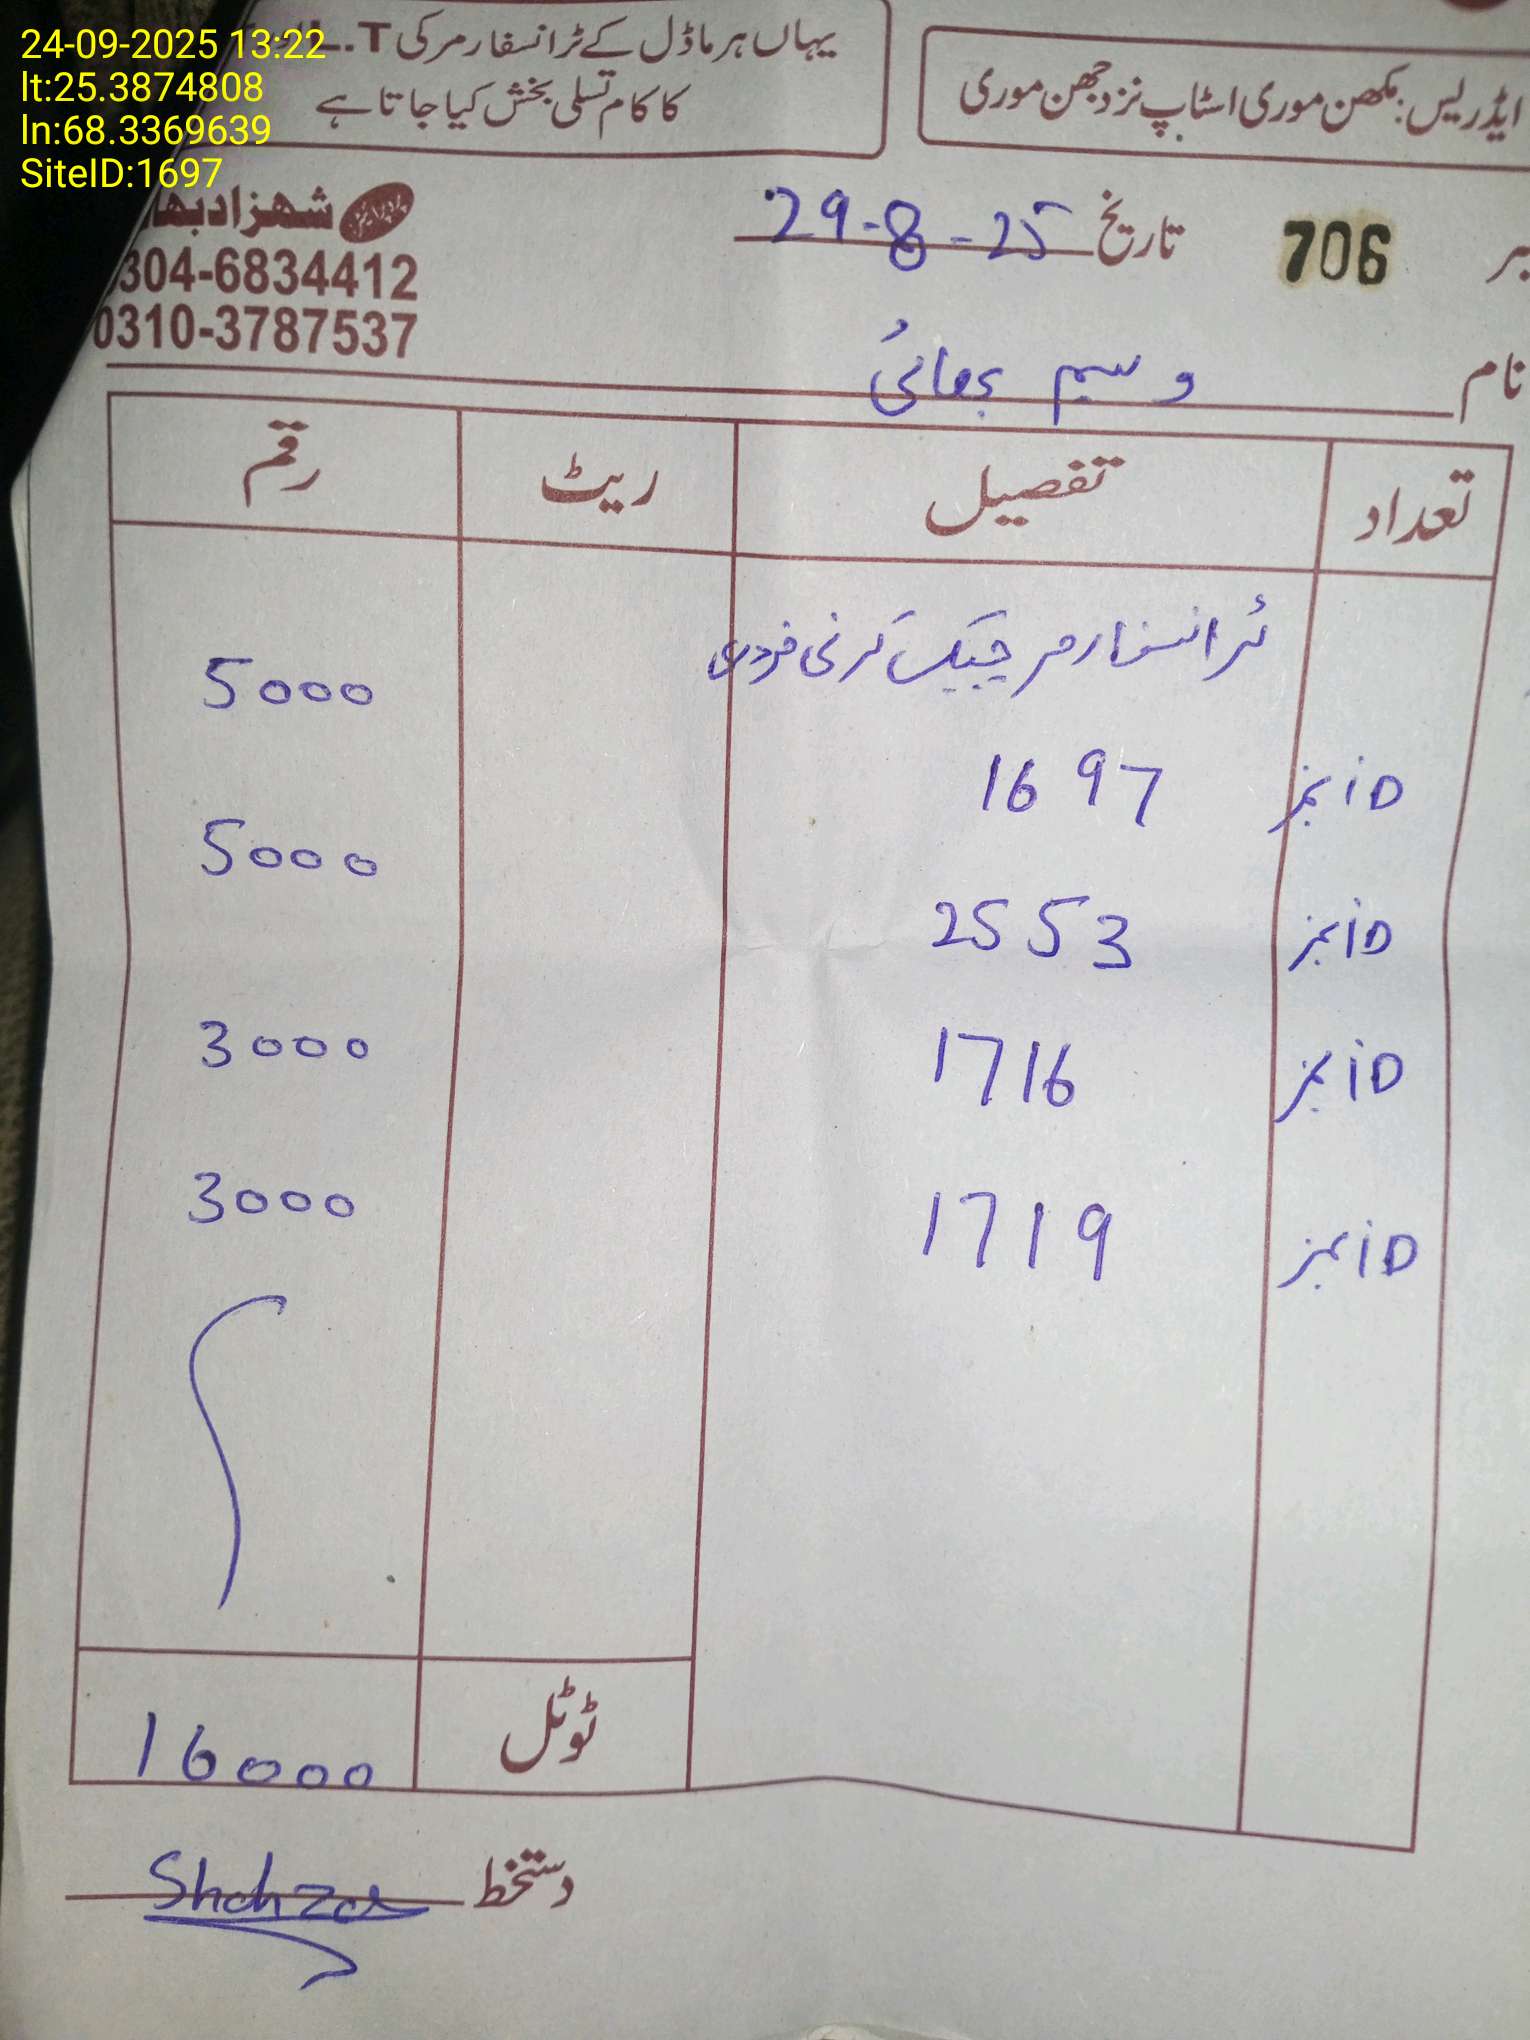 24-09-2025 13:22
lt:25.3874808
ln:68.3369639
SiteID:1697
یہاں ہر ماڈل کے ٹرانسفارمر کی
کا کام تسلی بخش کیا جاتا ہے
ایڈریس: مکھن موری اسٹاپ نزد جھن موری
شهزاد
304-6834412
0310-3787537
706
تاریخ 29-8-25
نام وسیم بھائی
تعداد تفصیل ریٹ رقم
ٹرانسفارمر چیک کرنی مزدوری 5000
iD نمبر 1697
5000
iD نمبر 2553
iD نمبر 1716 3000
iD نمبر 1719 3000
ٹوٹل 16000
دستخط Shahzad